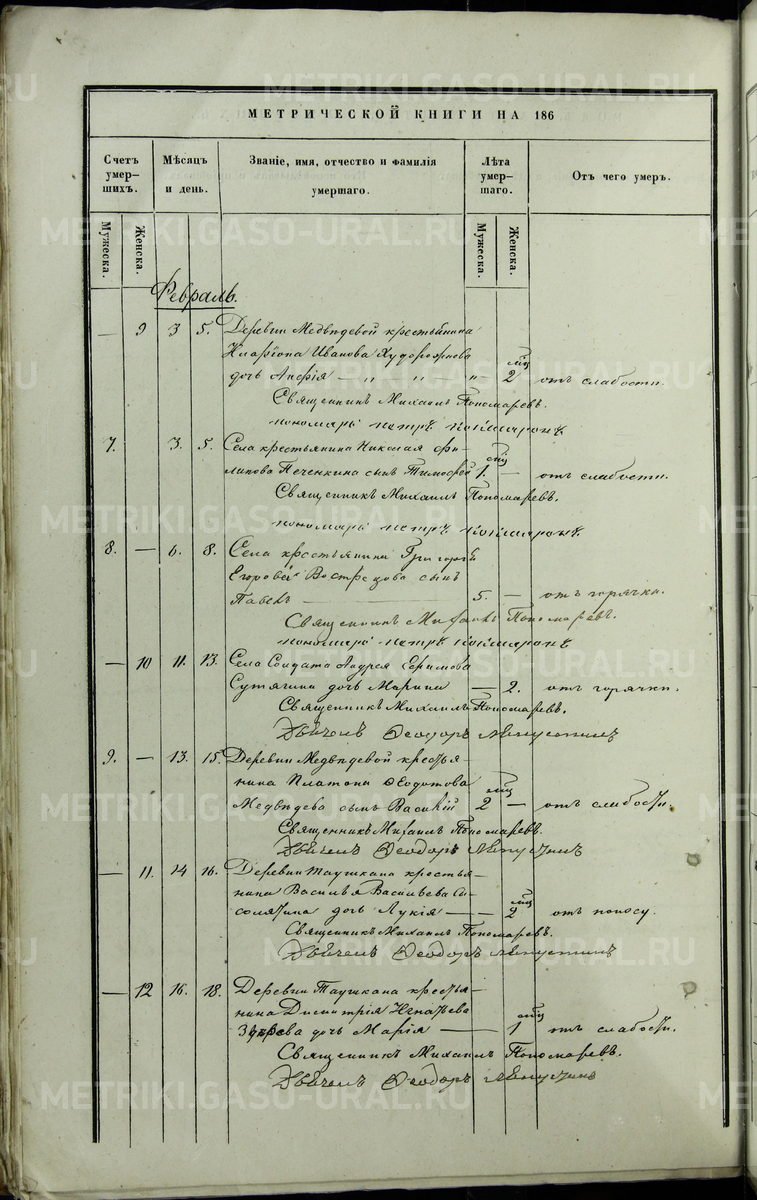 МЕТРИЧЕСКОЙ КНИГИ НА 186
Счетъ умер-шихъ. Мѣсяцъ и день. Званіе, имя, отчество и фамилія умершаго. Лѣта умер-шаго. Отъ чего умеръ.
Мужеска. Женска. Мужеска. Женска.
Февраль.
— 9 3 5. Деревни Медвѣдевой крестьянина
Иларіона Иванова Худорожкова мц
дочь Анфія — „ „ — „ 2 отъ слабости.
Священникъ Михаилъ Пономаревъ.
пономарь петръ
7. 3. 5. Села крестьянина Николая Фи-
липова Печенкина сынъ Тимофей 1. мц — отъ слабости.
Священникъ Михаилъ Пономаревъ.
пономарь петръ
8. — 6. 8. Села крестьянина Григорія
Егорова Вострецова сынъ
Павелъ — 5. — отъ горячки.
Священникъ Михаилъ Пономаревъ.
пономарь петръ
— 10 11. 13. Села Солдата Андрея Ефимова
Сутягина дочь Марина — 2. отъ горячки.
Священникъ Михаилъ Пономаревъ.
Дьячекъ Ѳеодоръ
9. — 13. 15. Деревни Медвѣдевой кресть-
нина Платона Ѳеодотова
Медвѣдева сынъ Василій 2 мц — отъ слабости.
Священникъ Михаилъ Пономаревъ.
Дьячекъ Ѳеодоръ
— 11. 14 16. Деревни Таушкана крестья-
нина Василья Васильева Си-
солятина дочь Лукія — — 2 мц отъ поносу.
Священникъ Михаилъ Пономаревъ.
Дьячекъ Ѳеодоръ
— 12 16. 18. Деревни Таушкана крестья-
нина Димитрія Игнатьева
дочь Марія — 1 мц отъ слабости.
Священникъ Михаилъ Пономаревъ.
Дьячекъ Ѳеодоръ
METRIKI.GASO-URAL.RU